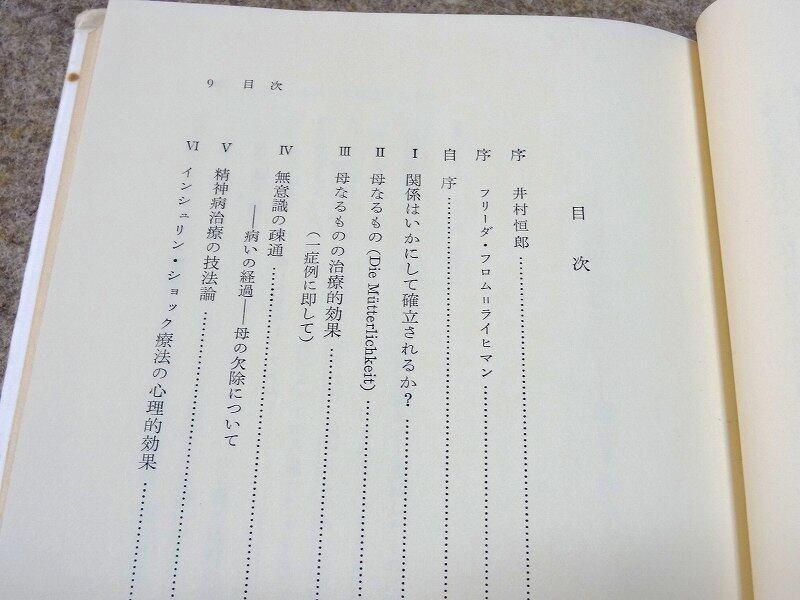 9 目次
目次
序 井村恒郎
序 フリーダ・フロム=ライヒマン
自序
I 関係はいかにして確立されるか?
II 母なるもの (Die Mütterlichkeit)
III 母なるものの治療的効果
(一症例に即して)
IV 無意識の疎通
——病いの経過——母の欠除について
V 精神病治療の技法論
VI インシュリン・ショック療法の心理的効果